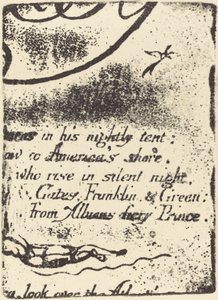 in his nightly tent:
to Americas shore:
who rise in silent night
Gates, Franklin, & Green:
from Albions fiery Prince.
look over the